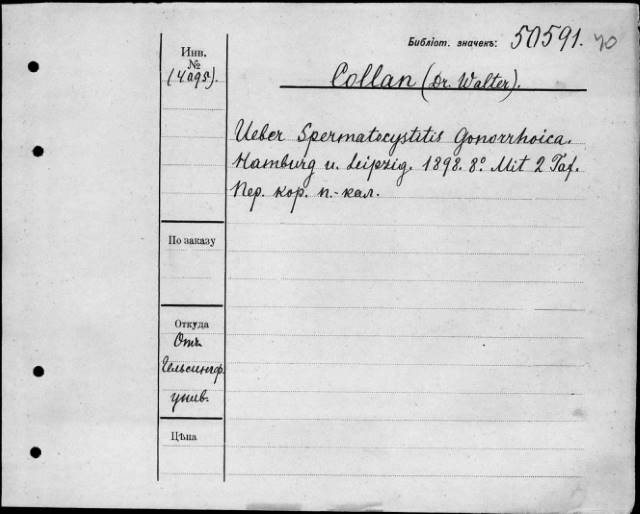 Библіот. значекъ: 50591. 40
Инв.
№
Collan (Dr. Walter).
Ueber Spermatocystitis Gonorrhoica.
Hamburg u. Leipzig. 1898. 8º. Mit 2 Taf.
Пер. кор. п.-кал.
По заказу
Откуда
Отъ
Гельсингф.
унив.
Цѣна